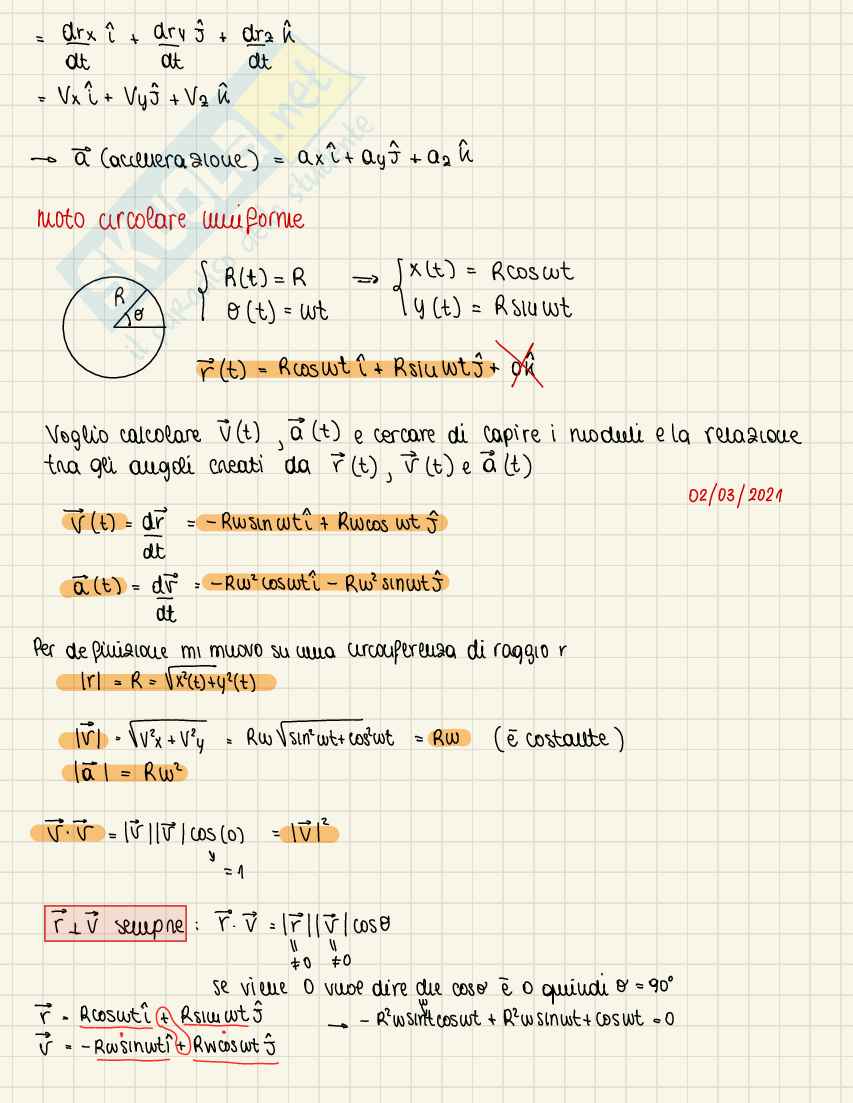 = drx/dt î + dry/dt ĵ + drz/dt k̂
= Vx î + Vy ĵ + Vz k̂
→ a⃗ (accelerazione) = ax î + ay ĵ + az k̂
SKUOLA.net
il paradiso dello studente
moto circolare uniforme
R
θ
{ R(t) = R ⟹ { x(t) = R cos ωt
θ(t) = ωt y(t) = R sin ωt
r⃗(t) = R cos ωt î + R sin ωt ĵ + 0k̂
Voglio calcolare v⃗(t), a⃗(t) e cercare di capire i moduli e la relazione
tra gli angoli creati da r⃗(t), v⃗(t) e a⃗(t)
02/03/2021
v⃗(t) = dr⃗/dt = -Rω sin ωt î + Rω cos ωt ĵ
a⃗(t) = dv⃗/dt = -Rω² cos ωt î - Rω² sin ωt ĵ
Per definizione mi muovo su una circonferenza di raggio r
|r| = R = √x²(t)+y²(t)
|v⃗| = √V²x + V²y = Rω √sin²ωt + cos²ωt = Rω (è costante)
|a⃗| = Rω²
v⃗ · v⃗ = |v⃗||v⃗| cos(0) = |v⃗|²
= 1
r⃗ ⊥ v⃗ sempre : r⃗ · v⃗ = |r⃗||v⃗| cos θ
≠0 ≠0
se viene 0 vuol dire che cosθ è 0 quindi θ = 90°
r⃗ = R cos ωt î + R sin ωt ĵ → - R²ω sin t cos ωt + R²ω sin ωt + cos ωt = 0
v⃗ = -Rω sin ωt î + Rω cos ωt ĵ